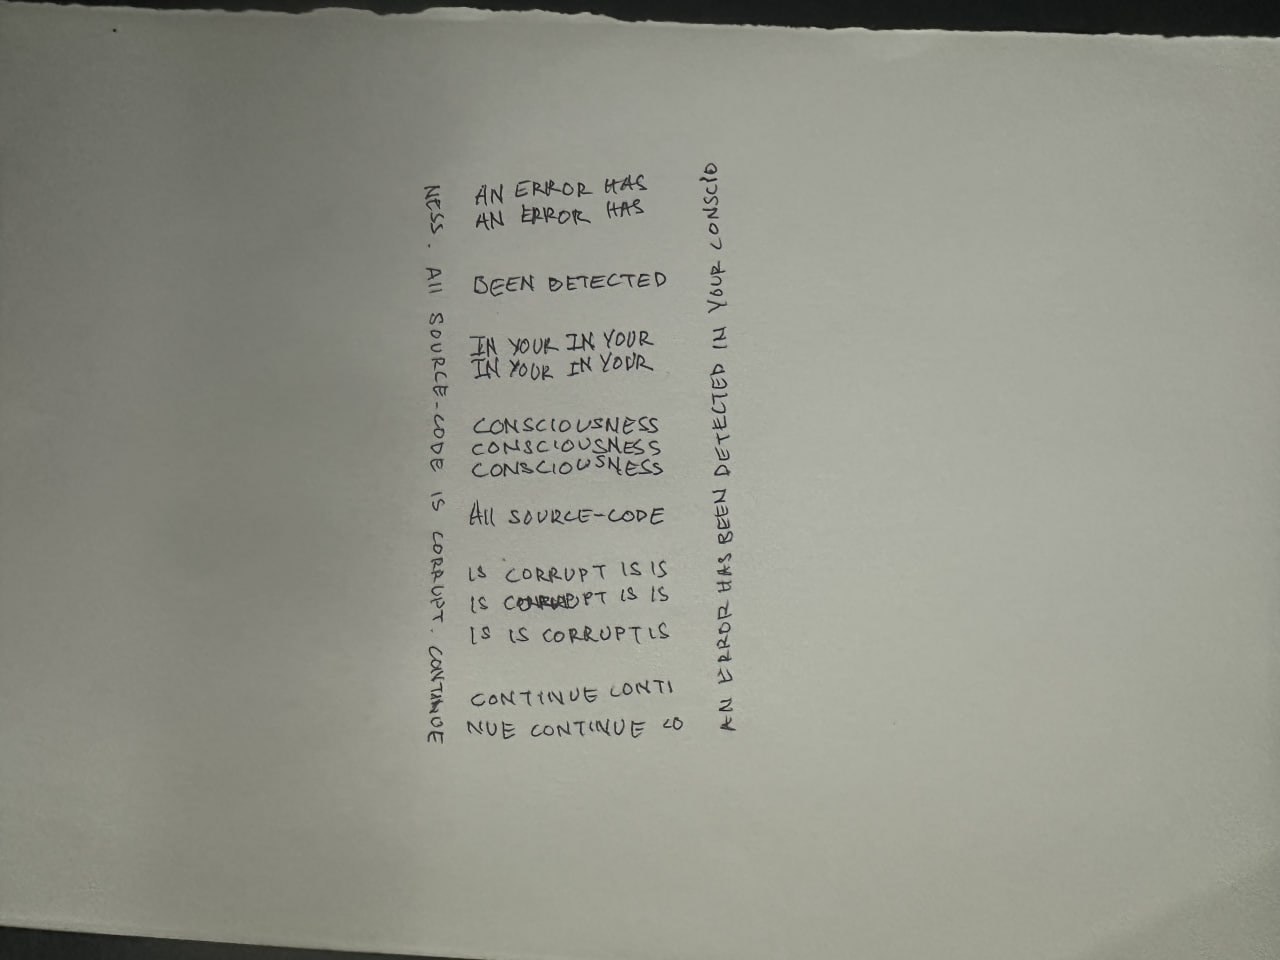 AN ERROR HAS
AN ERROR HAS
BEEN DETECTED
IN YOUR IN YOUR
IN YOUR IN YOUR
CONSCIOUSNESS
CONSCIOUSNESS
CONSCIOUSNESS
All SOURCE-CODE
IS CORRUPT IS IS
IS CORRUPT IS IS
IS IS CORRUPT IS
CONTINUE CONTI
NUE CONTINUE CO
AN ERROR HAS BEEN DETECTED IN YOUR CONSCIO
NESS. All SOURCE-CODE IS CORRUPT. CONTINUE